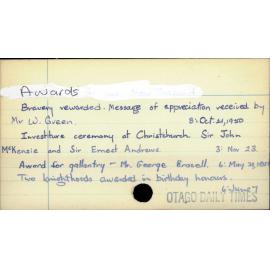 Awards
Bravery rewarded. Message of appreciation received by
Mr W. Green. 8: Oct. 21, 1950
Investiture ceremony at Christchurch. Sir John
McKenzie and Sir Ernest Andrews 3: Nov 23.
Award for gallantry - Mr. George Brasell. 6: May 23,
Two knighthoods awarded in birthday honours.
6: June 7
OTAGO DAILY TIMES